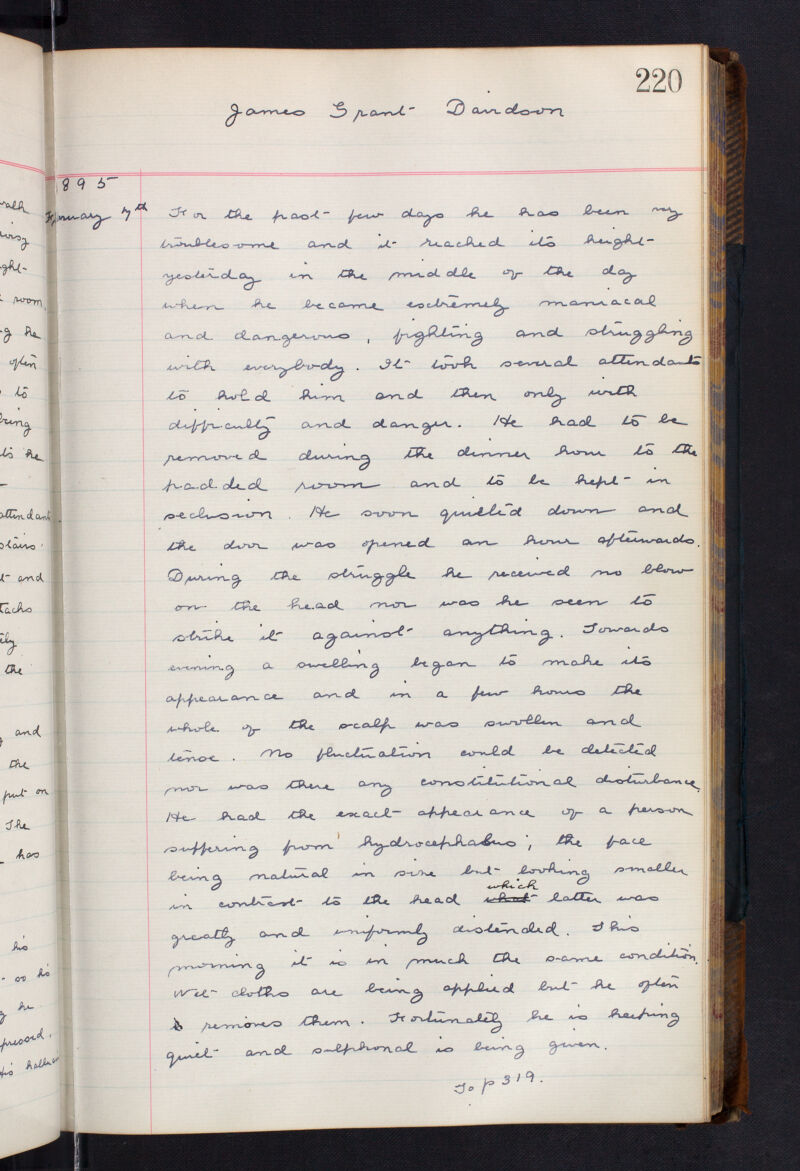 220
James Grant Davidson
1895
February 7th
For the past few days he has been very
troublesome and it reached its height
yesterday in the middle of the day
when he became extremely maniacal
and dangerous, fighting and struggling
with everybody. It took several attendants
to hold him and then only with
difficulty and danger. He had to be
removed during the dinner hour to the
padded room and to be kept in
seclusion. He soon quieted down and
the door was opened an hour afterwards.
During the struggle he received no blow
on the head nor was he seen to
strike it against anything. Towards
evening a swelling began to make its
appearance and in a few hours the
whole of the scalp was swollen and
tense. No fluctuation could be detected
nor was there any constitutional disturbance.
He had the exact appearance of a person
suffering from hydrocephalus; the face
being natural in size but looking smaller
in contrast to the head what which latter was
greatly and uniformly distended. This
morning it is in much the same condition.
Wet cloths are being applied but he often
removes them. Fortunately he is keeping
quiet and sulphonal is being given.
To p 319.
room
he
often
to
he
attendant
stairs.
and
the
and
the
put on
The
has
his
so his
he
his